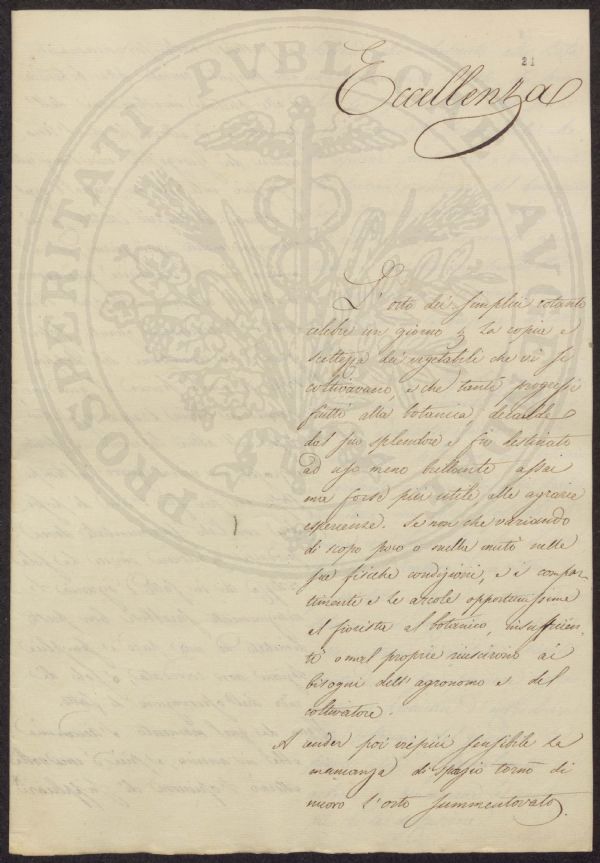 21
Eccellenza
L'orto dei Semplici cotanto
celebre un giorno p la copia e
sceltezza dei vegetabili che vi si
coltivavano, e che tanti progressi
fruttò alla botanica, decadde
dal suo splendore e fu destinato
ad uso meno brillante assai
ma forse più utile alle agrarie
esperienze. Se non che variando
di scopo poco o nulla mutò nelle
sue fisiche condizioni, e i compar-
timenti e le areole opportunissime
al fiorista al botanico, insufficien-
ti o mal proprie riuscirono ai
bisogni dell'agronomo e del
coltivatore.
A render poi viepiù sensibile la
mancanza di spazio tornò di
nuovo l'orto summentovato
PROSPERITATI PVBLICAE AVG